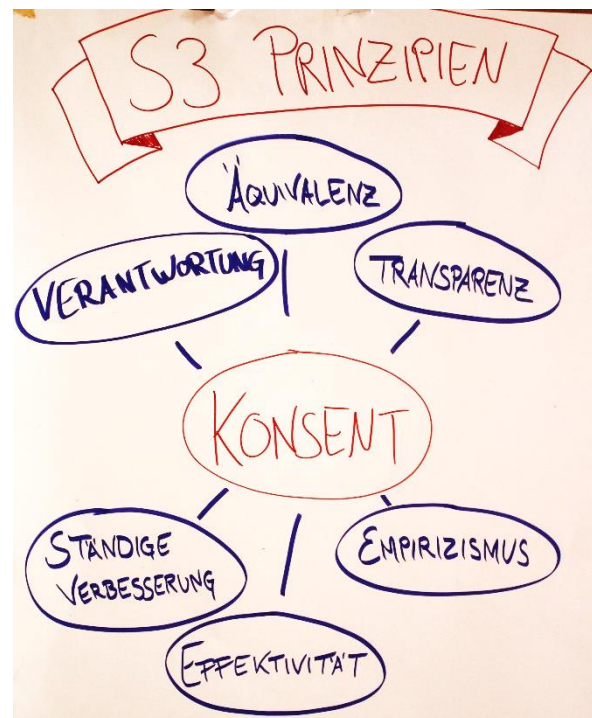 S3 PRINZIPIEN
ÄQUIVALENZ
VERANTWORTUNG
TRANSPARENZ
KONSENT
STÄNDIGE
VERBESSERUNG
EMPIRIZISMUS
EFFEKTIVITÄT